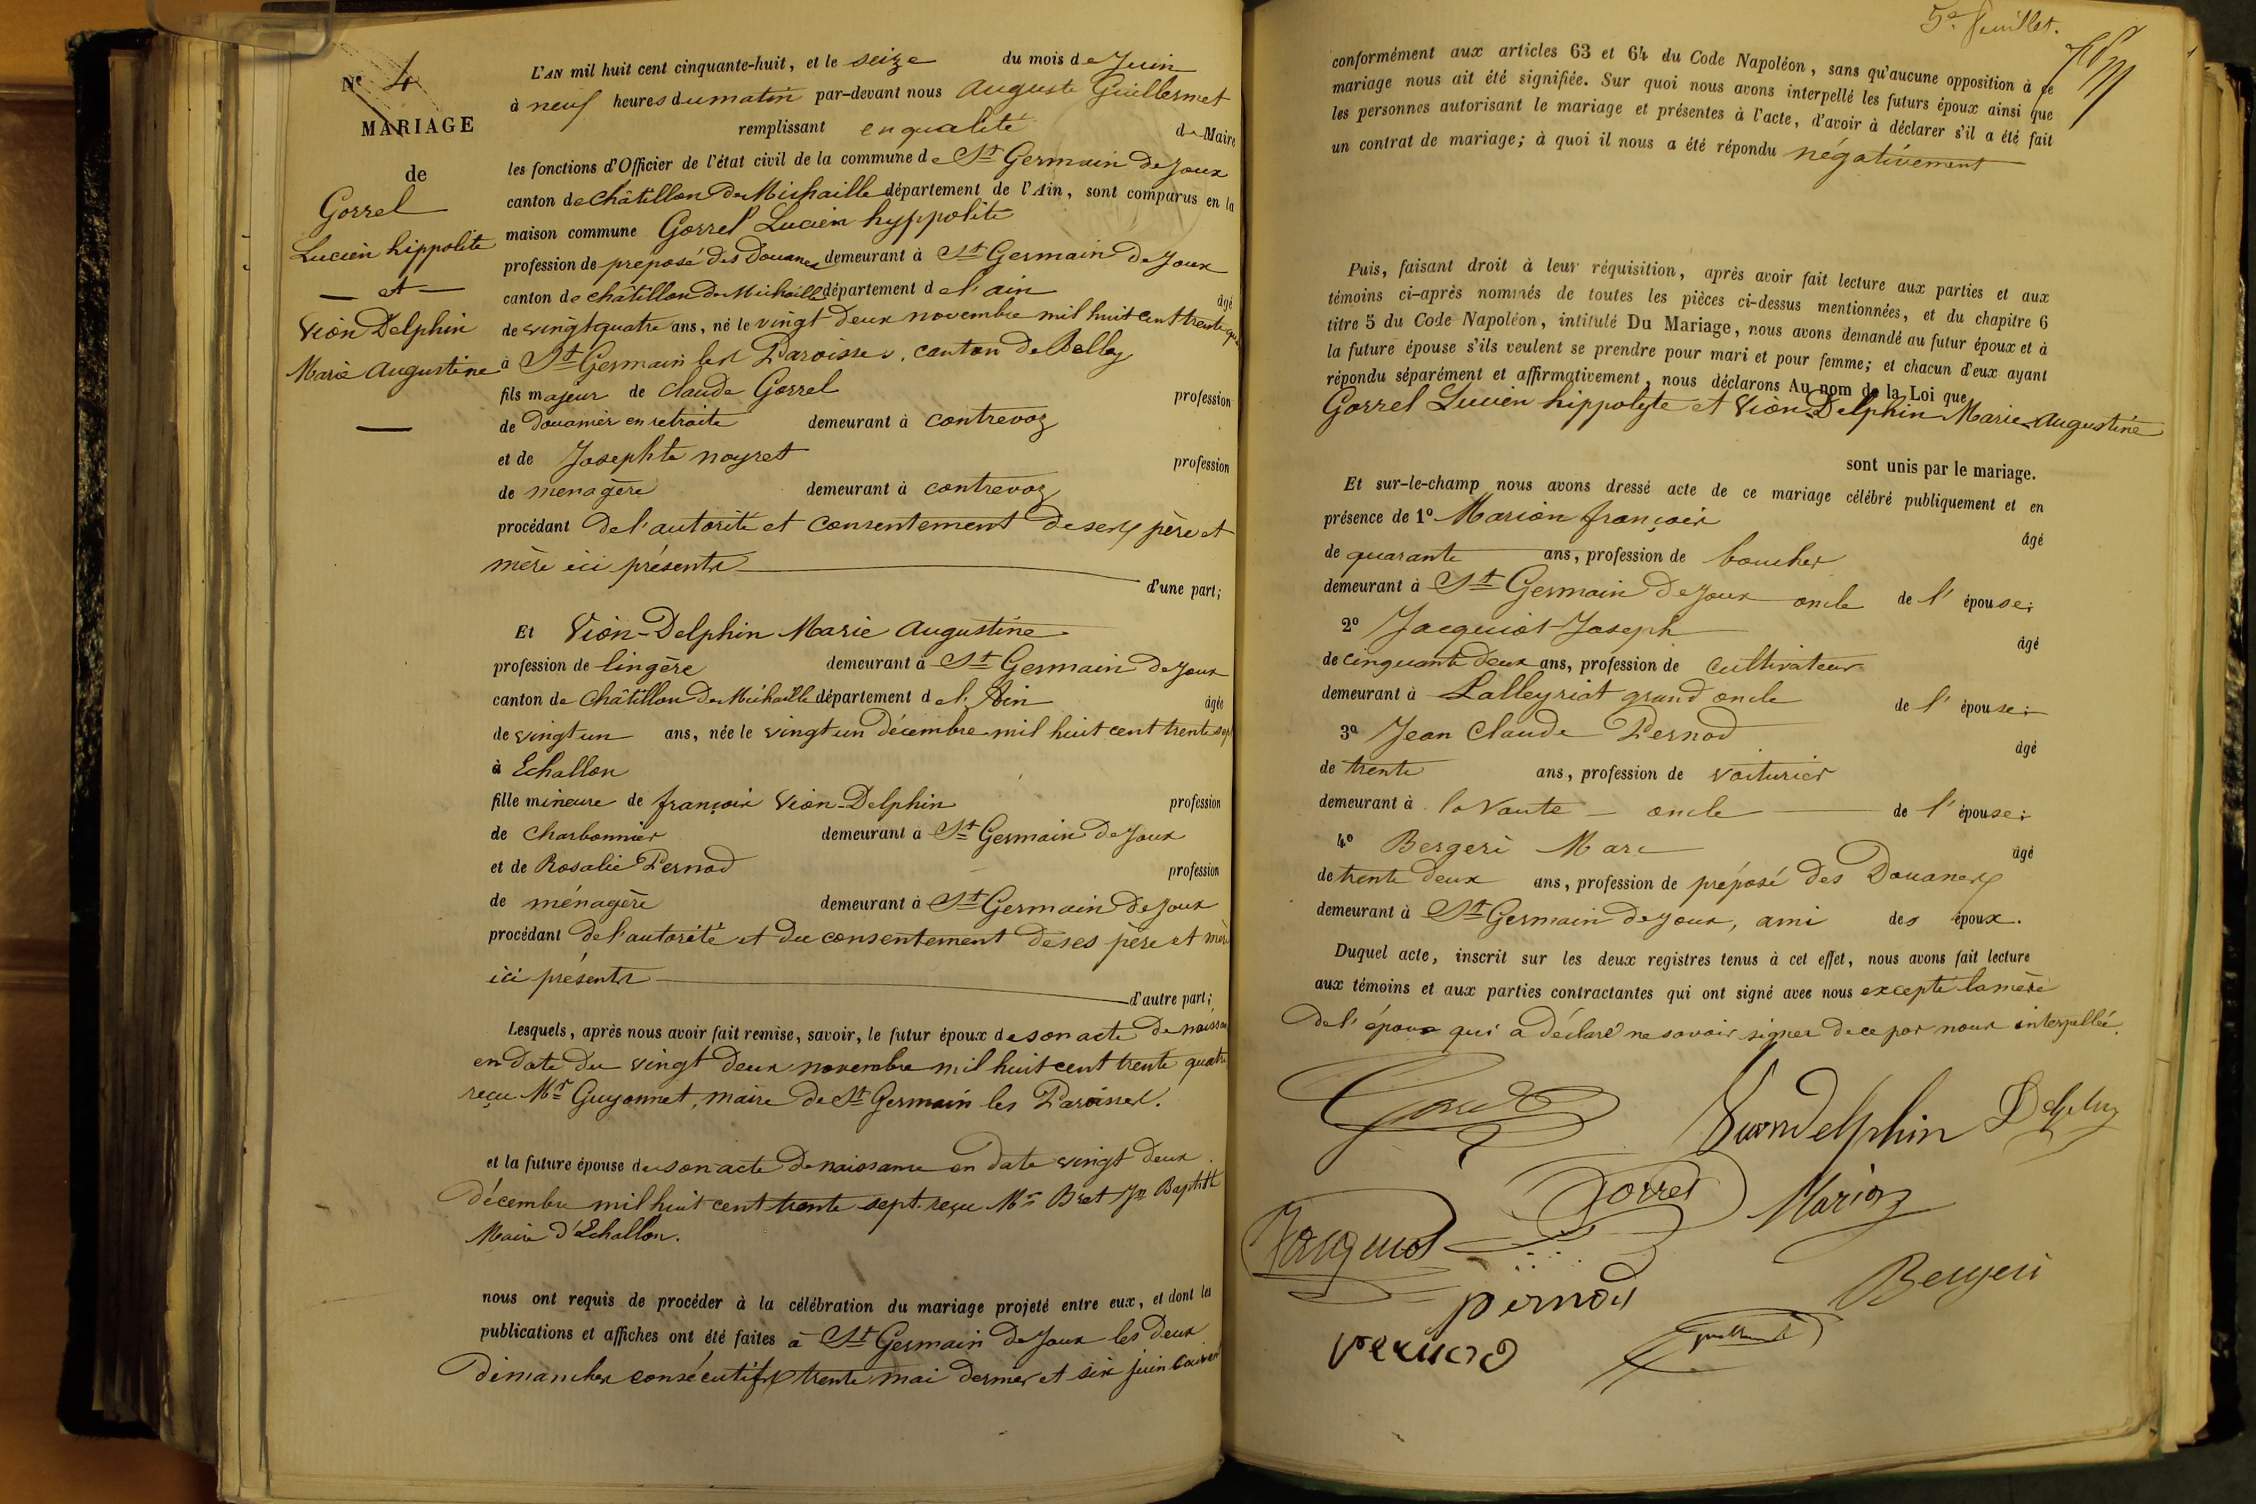 Nº 4
MARIAGE
de
Gorrel
Lucien hippolite
et
Vion Delphin
Marie Augustine
L'AN mil huit cent cinquante-huit, et le seize du mois de Juin
à neuf heures du matin par-devant nous Auguste Guillermet
remplissant en qualité de Maire
les fonctions d'Officier de l'état civil de la commune de St Germain de Joux
canton de Châtillon de Michaille département de l'Ain, sont comparus en la
maison commune Gorrel Lucien hyppolite
profession de préposé des Douanes demeurant à St Germain de Joux
canton de châtillon de Michaille département de l'ain âgé
de vingt quatre ans, né le vingt deux novembre mil huit cent trente
à St Germain les Paroisses, canton de Belley
fils majeur de Claude Gorrel profession
de Douanier en retraite demeurant à Contrevoz
et de Josephte noyret profession
de ménagère demeurant à Contrevoz
procédant de l'autorité et consentement de ses père et
mère ici présents d'une part;
Et Vion-Delphin Marie Augustine
profession de lingère demeurant à St Germain de Joux
canton de Châtillon de Michaille département de l'Ain âgée
de vingt un ans, née le vingt un Décembre mil huit cent trente sept
à Echallon
fille mineure de françois Vion-Delphin profession
de Charbonnier demeurant à St Germain de Joux
et de Rosalie Pernod profession
de ménagère demeurant à St Germain de Joux
procédant de l'autorité et du consentement de ses père et mère
ici présents d'autre part;
Lesquels, après nous avoir fait remise, savoir, le futur époux de son acte de naissance
en date du vingt deux novembre mil huit cent trente quatre
reçu Mr Guyonnet, maire de St Germain les Paroisses.
et la future épouse de son acte de naissance en date vingt deux
décembre mil huit cent trente sept reçu Mr Bret Jn Baptiste
Maire d'Echallon.
nous ont requis de procéder à la célébration du mariage projeté entre eux, et dont les
publications et affiches ont été faites à St Germain de Joux les deux
Dimanches consécutifs trente mai dernier et six juin courant
5e feuillet.
conformément aux articles 63 et 64 du Code Napoléon, sans qu'aucune opposition à ce
mariage nous ait été signifiée. Sur quoi nous avons interpellé les futurs époux ainsi que
les personnes autorisant le mariage et présentes à l'acte, d'avoir à déclarer s'il a été fait
un contrat de mariage; à quoi il nous a été répondu négativement
Puis, faisant droit à leur réquisition, après avoir fait lecture aux parties et aux
témoins ci-après nommés de toutes les pièces ci-dessus mentionnées, et du chapitre 6
titre 5 du Code Napoléon, intitulé Du Mariage, nous avons demandé au futur époux et à
la future épouse s'ils veulent se prendre pour mari et pour femme; et chacun d'eux ayant
répondu séparément et affirmativement, nous déclarons Au nom de la Loi que
Gorrel Lucien hippolyte et Vion-Delphin Marie Augustine
sont unis par le mariage.
Et sur-le-champ nous avons dressé acte de ce mariage célébré publiquement et en
présence de 1º Marion françois âgé
de quarante ans, profession de boucher
demeurant à St Germain de Joux oncle de l'épouse;
2º Jacquiot Joseph âgé
de cinquante deux ans, profession de cultivateur
demeurant à Lalleyriat grand oncle de l'épouse;
3º Jean Claude Pernod âgé
de trente ans, profession de voiturier
demeurant à la Voute - oncle de l'épouse;
4º Bergeri Marc âgé
de trente deux ans, profession de préposé des Douanes
demeurant à St Germain de Joux, ami des époux.
Duquel acte, inscrit sur les deux registres tenus à cet effet, nous avons fait lecture
aux témoins et aux parties contractantes qui ont signé avec nous excepté la mère
de l'époux qui a déclaré ne savoir signer de ce par nous interpellée.
Viondelphin
Gorrel
Marion
Jacquiot
Bergeri
pernod